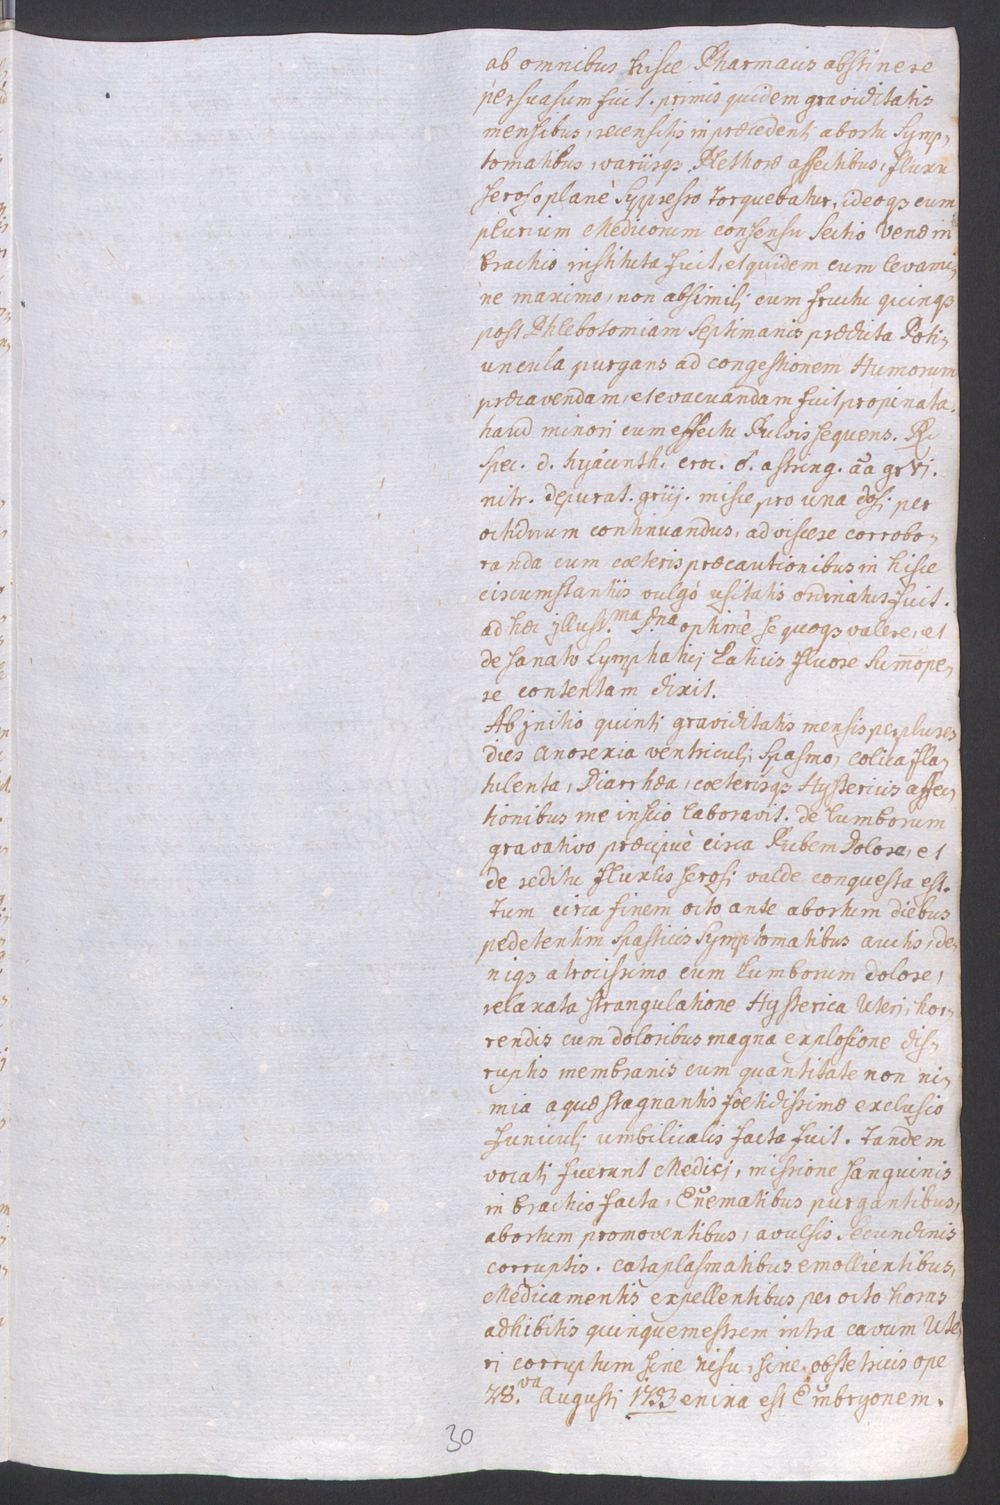 ab omnibus hisce Pharmacis abstinere
persuasum fuit. primis quidem graviditatis
mensibus, recensitis in præcedenti abortu Symp,
tomatibus, variisqз Plethoræ affectibus, fluxu
seroso planè Suppresso torquebatur, ideoqз cum
plurium Medicorum consensu Sectio Venæ in
brachio instituta fuit, et quidem cum levami,
ne maximo, non absimili cum fructu quinqз
post Phlebotomiam Septimanis prædicta Poti,
uncula purgans ad congestionem Humorum
præcavendam, et evacuandam fuit propinata.
haud minori cum effectu Pulvis sequens. Rc
Spec. d. hyacinth. croc. ♂. astring. aa gr vi.
nitr. depurat. griij. misce pro una dosi per
octiduum continuandus, ad viscere corrobo,
randa cum cæteris præcautionibus in hisce
circumstantiis vulgò usitatis ordinatus fuit.
ad hæc jllust.ma D.na optimè se quoqз valere, et
de sanato Lymphatici Laticis fluore Sum̄ope,
re contentam dixit.
Ab jnitio quinti graviditatis mensis per plures
dies anorexia ventriculi Spasmo, colica fla,
tulenta, Diarrhæa, cæterisqз Hystericis affec,
tionibus me inscio laboravit. de Lumborum
gravativo præcipuè circa Pubem Dolore, et
de reditu fluxus serosi valde conquesta est.
Tum circa finem octo ante abortum diebus
pedetentim Spasticis Symptomatibus auctis, de,
niqз atrocissimo cum Lumborum dolore,
relaxata strangulatione Hysterica Uteri, hor,
rendis cum doloribus magna explosione dis,
ruptis membranis cum quantitate non ni,
mia aquæ stagnantis foetidissimæ exclusio
funiculi umbilicalis facta fuit. Tandem
vocati fuerunt Medici, missione sanguinis
in brachio facta, Enematibus purgantibus,
abortum promoventibus, avulsis Secundinis
corruptis. cataplasmatibus emollientibus,
Medicamentis expellentibus per octo horas
adhibitis quinquemestrem intra cavum Ute,
ri corruptum sine nisu, sine obstetricis ope
28.va Augusti 1733 enixa est Embryonem.
30